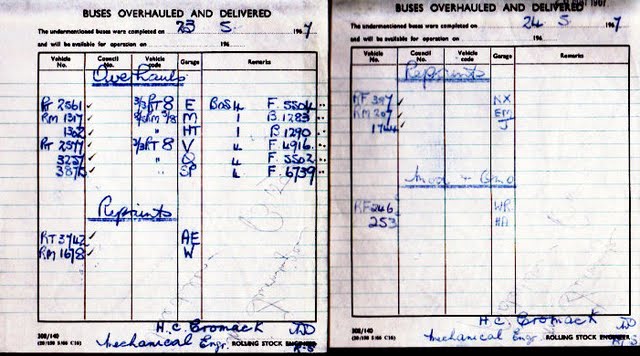 BUSES OVERHAULED AND DELIVERED
The undermentioned buses were completed on 23 5 1967
and will be available for operation on 196
Vehicle No. Council No. Vehicle code Garage Remarks
Overhauls
RT 2561 ✓ 3/3RT8 E Bns 4 F. 5504
RM 1317 ✓ M 1 B. 1283
1302 ✓ " HT 1 B. 1290
RT 2577 ✓ 2/3RT8 V 4 F. 4916
3237 ✓ " Q 4 F. 5502
387 ✓ " SP 4 F. 6739
Repaints
RT 3742 ✓ AE
RM 1678 ✓ W
H.C. Cromack
308/140
Mechanical Engr. ROLLING STOCK ENGINEER
R-S
BUSES OVERHAULED AND DELIVERED
The undermentioned buses were completed on 24 5 1967
and will be available for operation on 196
Vehicle No. Council No. Vehicle code Garage Remarks
Repaints
RF 397 ✓ NX
RM 207 ✓ EM
1744 ✓ J
RF 246 WR
253 HA
H.C. Cromack
308/140
Mechanical Engr. ROLLING STOCK ENGINEER
R-S